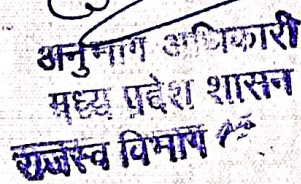 अनुभाग अधिकारी
मध्य प्रदेश शासन
राजस्व विभाग